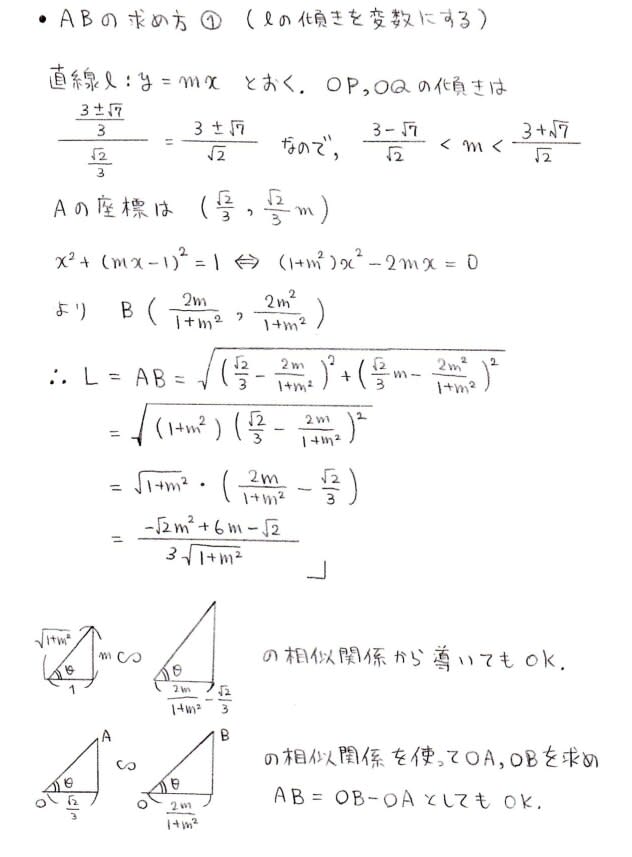 • ABの求め方 ① (lの傾きを変数にする)
直線l : y = mx とおく. OP, OQの傾きは
\frac{\frac{3±√7}{3}}{\frac{√2}{3}} = \frac{3±√7}{√2} なので, \frac{3-√7}{√2} < m < \frac{3+√7}{√2}
Aの座標は (\frac{√2}{3}, \frac{√2}{3}m)
x²+(mx-1)²=1 ⇔ (1+m²)x²-2mx=0
より B(\frac{2m}{1+m²}, \frac{2m²}{1+m²})
∴ L = AB = \sqrt{(\frac{√2}{3}-\frac{2m}{1+m²})²+(\frac{√2}{3}m-\frac{2m²}{1+m²})²}
= \sqrt{(1+m²)(\frac{√2}{3}-\frac{2m}{1+m²})²}
= \sqrt{1+m²}・(\frac{2m}{1+m²}-\frac{√2}{3})
= \frac{-√2m²+6m-√2}{3\sqrt{1+m²}} 」
\sqrt{1+m²} θ 1 m ∽ θ \frac{2m}{1+m²}-\frac{√2}{3} の相似関係から導いてもOK.
O θ \frac{√2}{3} A ∽ O θ \frac{2m}{1+m²} B の相似関係を使ってOA, OBを求め
AB = OB-OAとしてもOK.